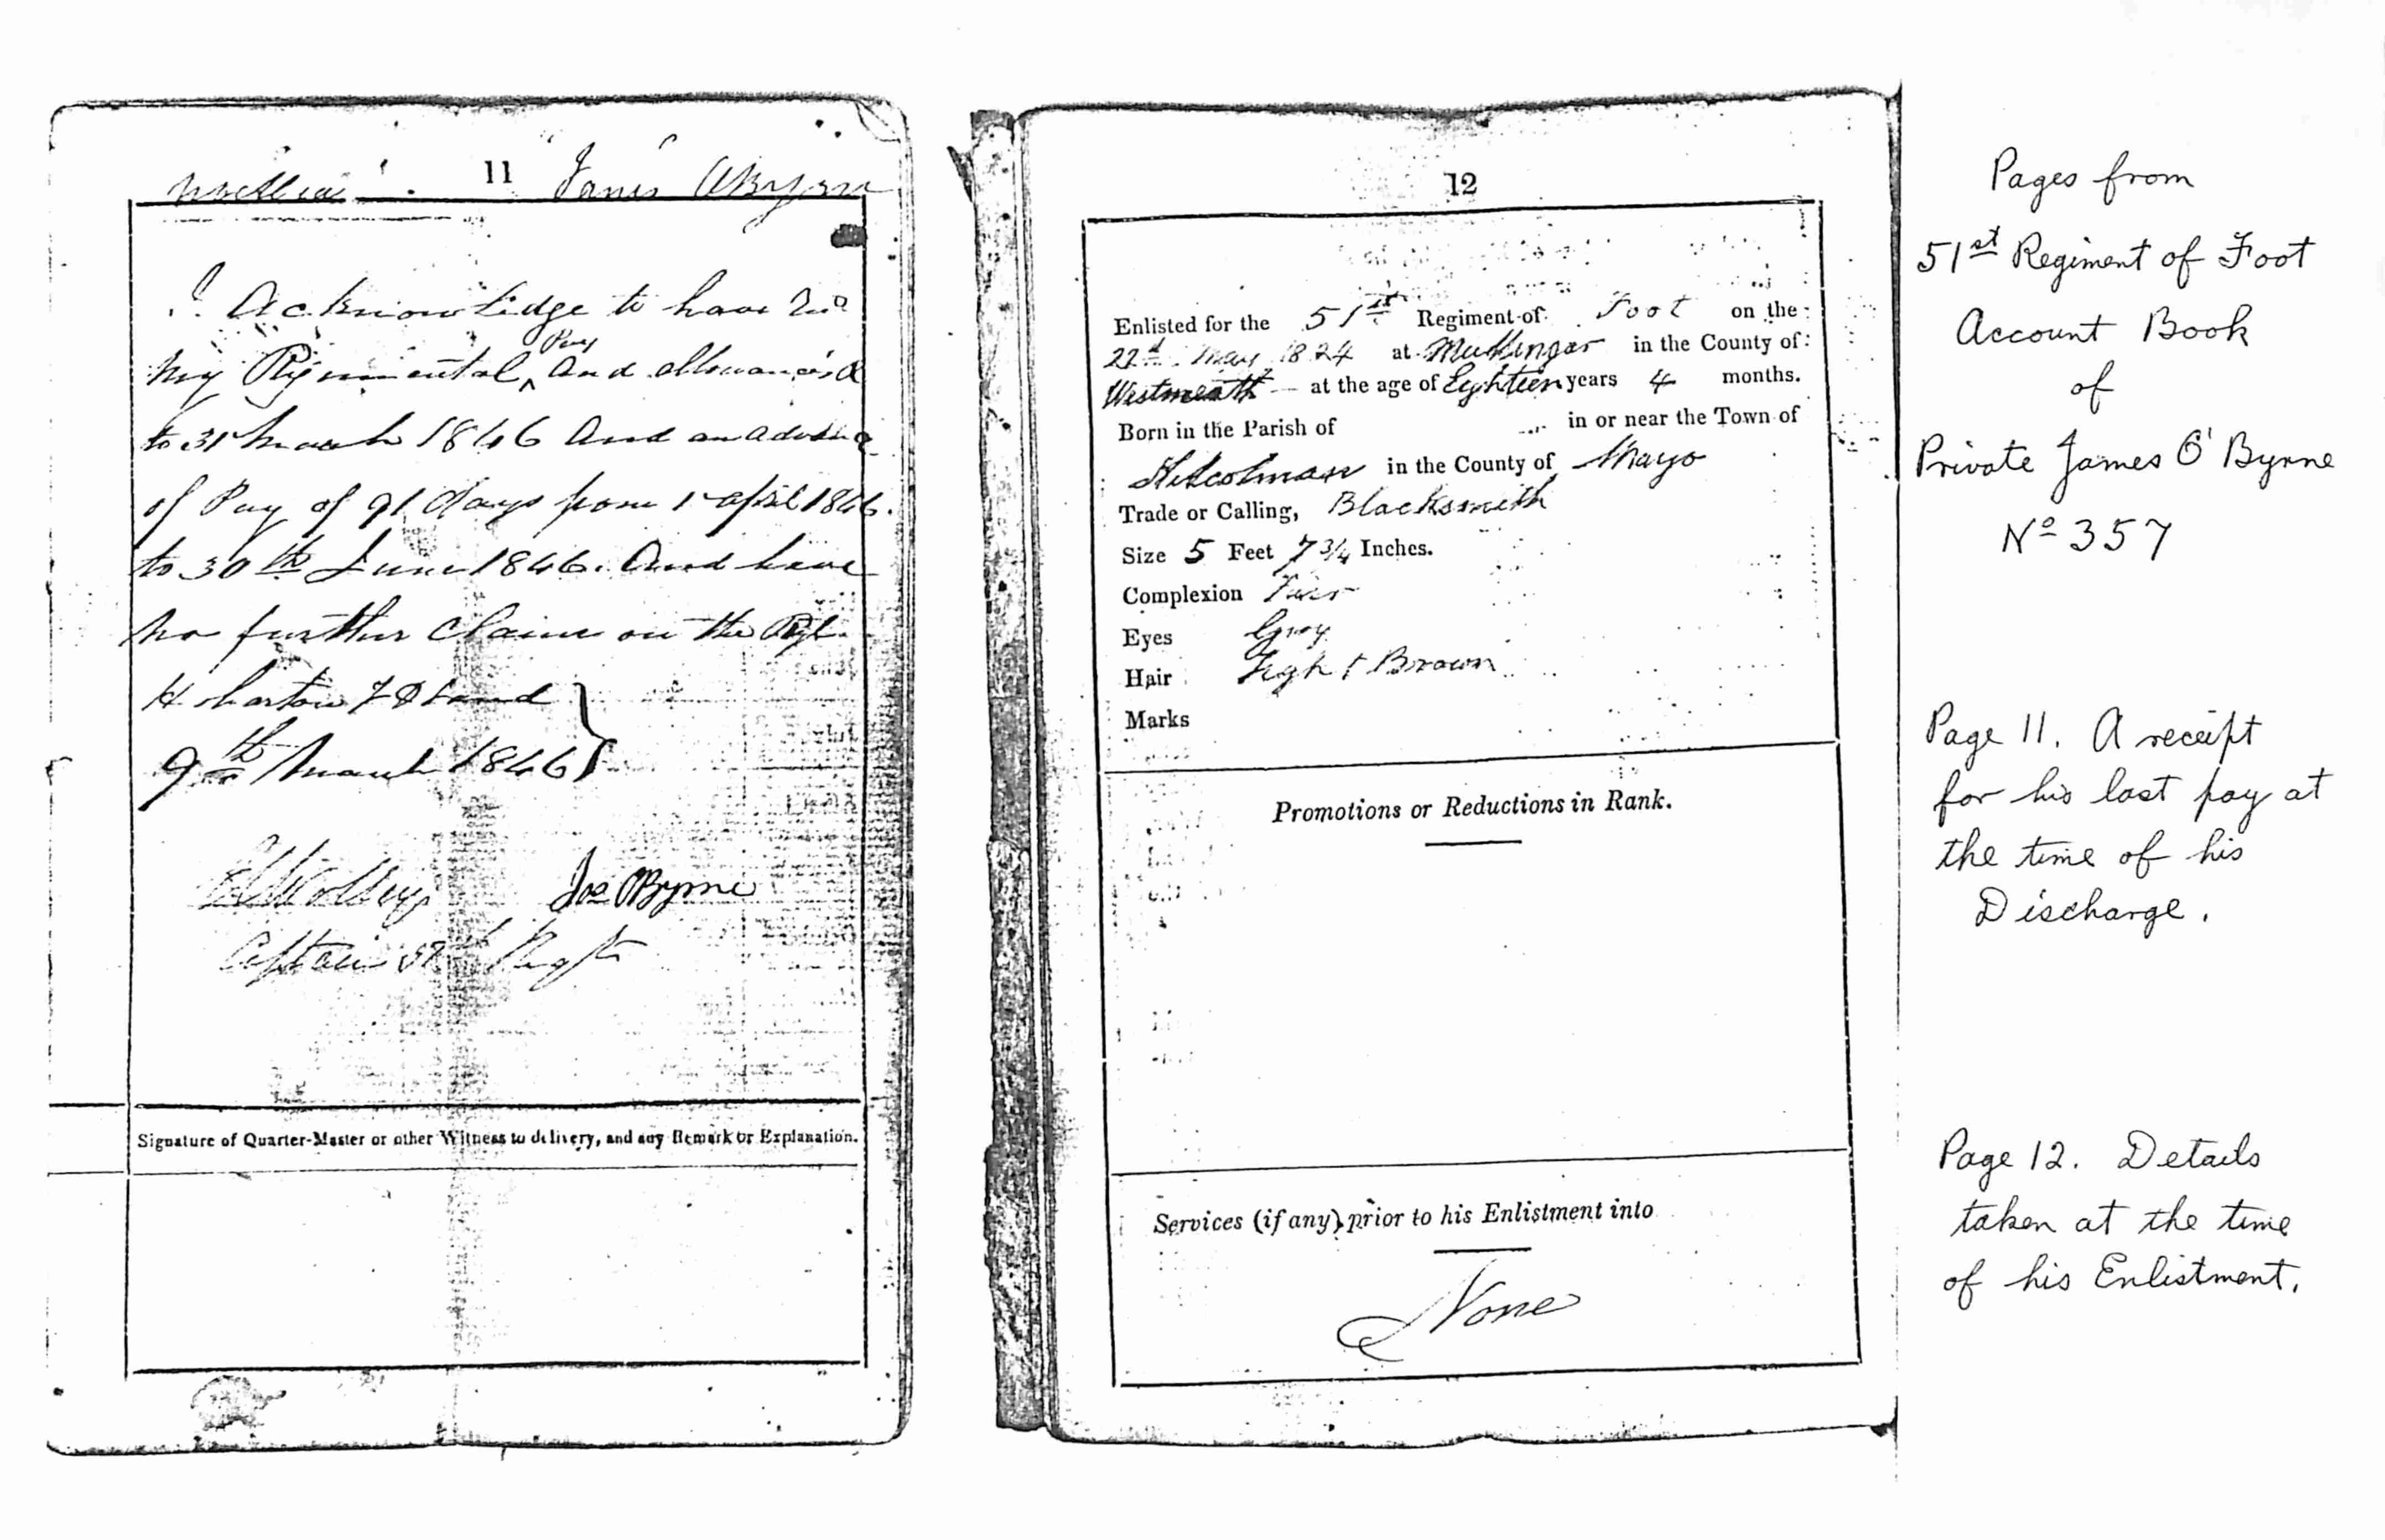 11 James OByrne
I Acknowledge to have
my Regimental Pay And allowances
to 31 March 1846 And an advance
of Pay of 91 days from 1 April 1846.
to 30th June 1846. And have
no further Claim on the Regt
Hobarton
9th March 1846
Jas OByrne
Captain 51st Regt
Signature of Quarter-Master or other Witness to delivery, and any Remark or Explanation.
12
Enlisted for the 51st Regiment of Foot on the
22d May 1824 at Mullingar in the County of
Westmeath at the age of Eighteen years 4 months.
Born in the Parish of in or near the Town of
Kilcolman in the County of Mayo
Trade or Calling, Blacksmith
Size 5 Feet 7 3/4 Inches.
Complexion Fair
Eyes Grey
Hair Light Brown
Marks
Promotions or Reductions in Rank.
Services (if any) prior to his Enlistment into
None
Pages from
51st Regiment of Foot
Account Book
of
Private James O'Byrne
No 357
Page 11. A receipt
for his last pay at
the time of his
Discharge.
Page 12. Details
taken at the time
of his Enlistment.